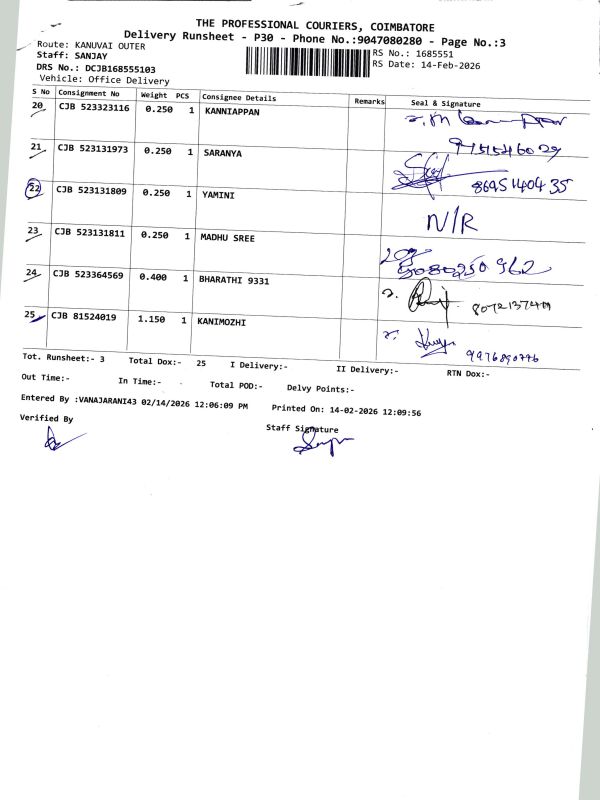 THE PROFESSIONAL COURIERS, COIMBATORE
Delivery Runsheet - P30 - Phone No.:9047080280 - Page No.:3
Route: KANUVAI OUTER
Staff: SANJAY
RS No.: 1685551
DRS No.: DCJB168555103
RS Date: 14-Feb-2026
Vehicle: Office Delivery
S No Consignment No Weight PCS Consignee Details Remarks Seal & Signature
20 CJB 523323116 0.250 1 KANNIAPPAN
21 CJB 523131973 0.250 1 SARANYA
22 CJB 523131809 0.250 1 YAMINI N/R
23 CJB 523131811 0.250 1 MADHU SREE
24 CJB 523364569 0.400 1 BHARATHI 9331
25 CJB 81524019 1.150 1 KANIMOZHI 9976890776
Tot. Runsheet:- 3 Total Dox:- 25 I Delivery:- II Delivery:- RTN Dox:-
Out Time:- In Time:- Total POD:- Delvy Points:-
Entered By :VANAJARANI43 02/14/2026 12:06:09 PM Printed On: 14-02-2026 12:09:56
Verified By
Staff Signature